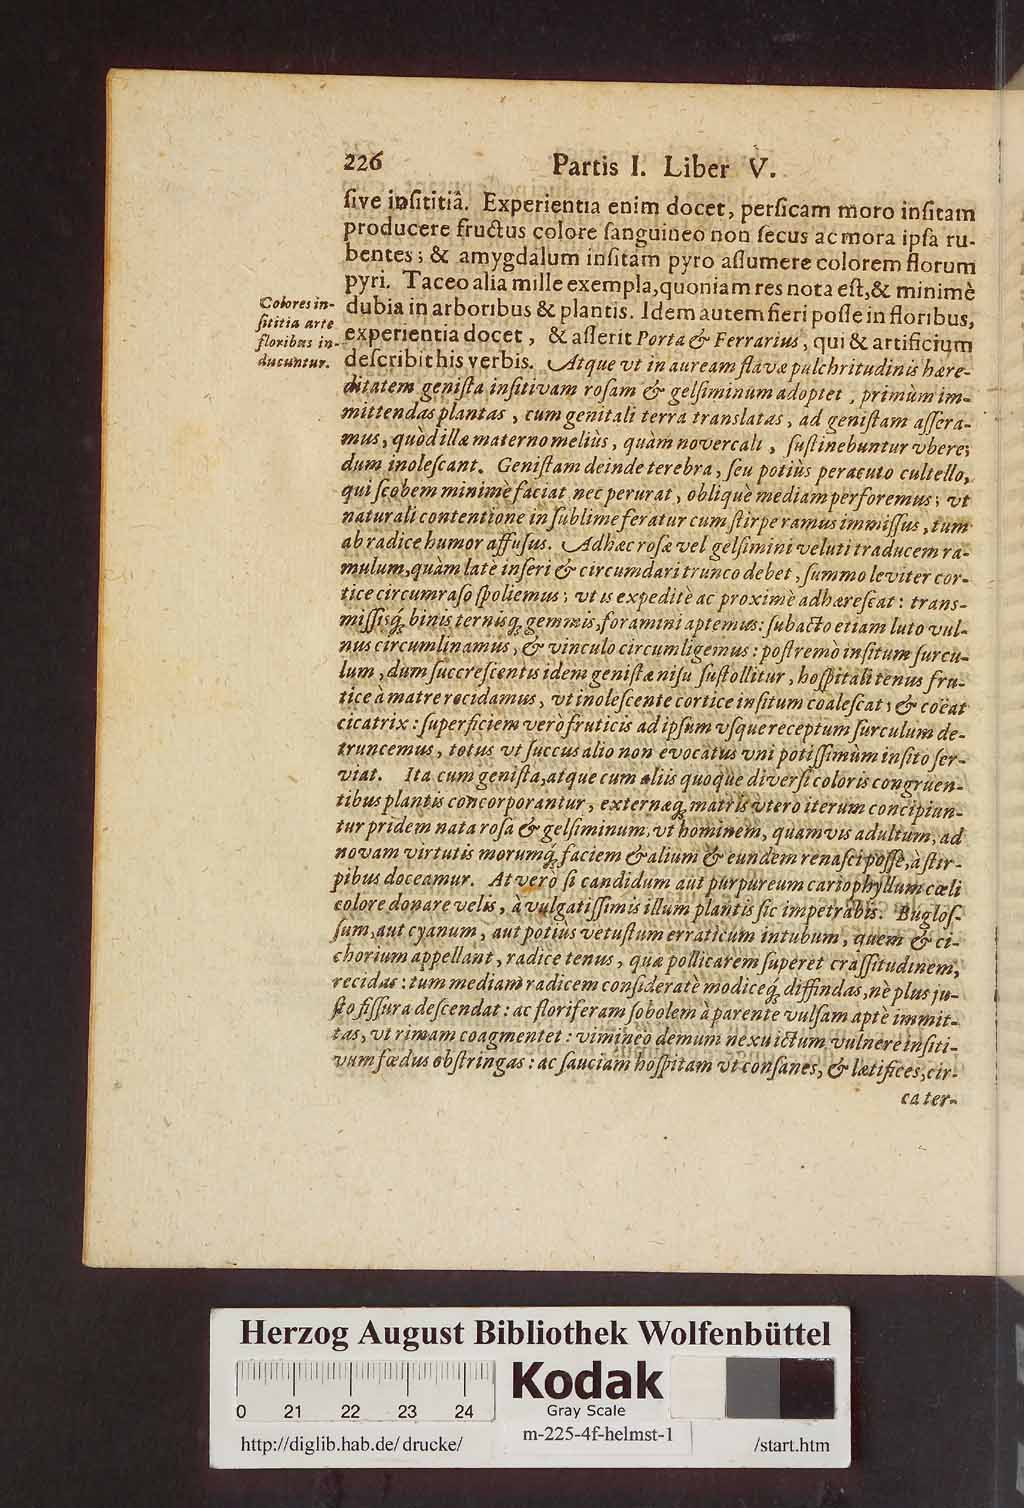 226 Partis I. Liber V.
ſive inſititiâ. Experientia enim docet, perſicam moro inſitam
producere fructus colore ſanguineo non ſecus ac mora ipſa ru-
bentes; & amygdalum inſitam pyro aſſumere colorem florum
pyri. Taceo alia mille exempla, quoniam res nota eſt, & minimè
dubia in arboribus & plantis. Idem autem fieri poſſe in floribus,
experientia docet, & aſſerit Porta & Ferrarius, qui & artificium
deſcribit his verbis. Atque vt in auream flavæ pulchritudinis hære-
Colores in-
ſititia arte
floribus in-
ducuntur.
ditatem geniſta inſitivam roſam & gelſiminum adoptet, primùm im-
mittendas plantas, cum genitali terra translatas, ad geniſtam aſſera-
mus, quòd illæ materno meliùs, quàm novercali, ſuſtinebuntur vbere;
dum inoleſcant. Geniſtam deinde terebra, ſeu potiùs peracuto cultello,
qui ſcobem minimè faciat nec perurat, obliquè mediam perforemus; vt
naturali contentione in ſublime feratur cum ſtirpe ramus immiſſus, tum
ab radice humor affuſus. Adhæc roſæ vel gelſimini veluti traducem ra-
mulum, quàm latè inſeri & circumdari trunco debet, ſummo leviter cor-
tice circumraſo ſpoliemus; vt is expeditè ac proximè adhæreſcat: trans-
miſſisq́; binis ternisq́; gemmis, foramini aptemus: ſubacto etiam luto vul-
nus circumlinamus, & vinculo circumligemus: poſtremò inſitum ſurcu-
lum, dum ſuccreſcentis idem geniſtæ niſu ſuſtollitur, hoſpitali tenus fru-
tice à matre recidamus, vt inoleſcente cortice inſitum coaleſcat; & coëat
cicatrix: ſuperficiem verò fruticis ad ipſum vſque receptum ſurculum de-
truncemus, totus vt ſuccus alio non evocatus vni potiſſimùm inſito ſer-
viat. Ita cum geniſta, atque cum aliis quoque diverſi coloris congruen-
tibus plantis concorporantur, externæq́; matris vtero iterum concipiun-
tur pridem nata roſa & gelſiminum, vt hominem, quamvis adultum, ad
novam virtutis morumq́; faciem & alium & eundem renaſci poſſe, à ſtir-
pibus doceamur. At verò ſi candidum aut purpureum cariophyllum cœli
colore donare velis, à vulgatiſſimis illum plantis ſic impetrabis. Bugloſ-
ſum, aut cyanum, aut potiùs vetuſtum erraticum intubum, quem & ci-
chorium appellant, radice tenus, quæ pollicarem ſuperet craſſitudinem,
recidas: tum mediam radicem conſideratè modiceq́; diffindas, nè plus ju-
ſto fiſſura deſcendat: ac floriferam ſobolem à parente vulſam aptè immit-
tas, vt rimam coagmentet: vimineo demum nexu ictum vulnere inſiti-
vum fœdus obſtringas: ac ſauciam hoſpitam vt conſanes, & lætifices, cir-
ca ter-
Herzog August Bibliothek Wolfenbüttel
Kodak
Gray Scale
0 21 22 23 24
m-225-4f-helmst-1
http://diglib.hab.de/drucke/ /start.htm